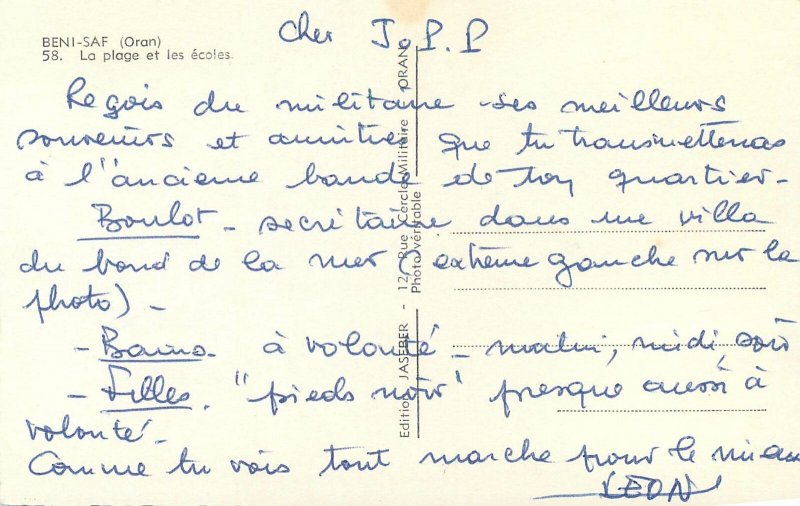 BENI-SAF (Oran)
58. La plage et les écoles.
cher J.P.P
Reçois du militaire ses meilleurs
souvenirs et amitiés que tu transmettras
à l'"ancienne bande de ton quartier -
Boulot - secrétaire dans une villa
du bord de la mer (extrême gauche sur la
photo) -
- Bains - à volonté - matin, midi, soir
- Filles. "pieds noirs" presque aussi à
volonté -
Comme tu vois tout marche pour le mieux
LEON
Edition JASEBER - 12, Rue Cercle Militaire ORAN
Photo véritable